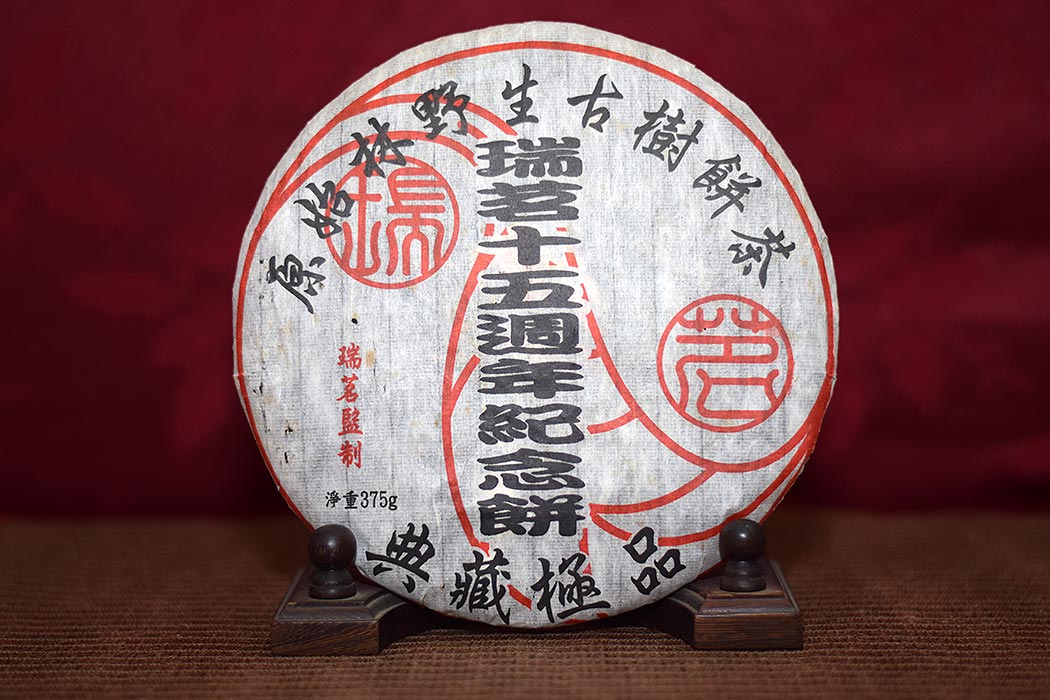 原始林野生古樹餅茶
瑞
瑞茗十五週年紀念餅
茗
瑞茗監制
淨重375g
典藏極品